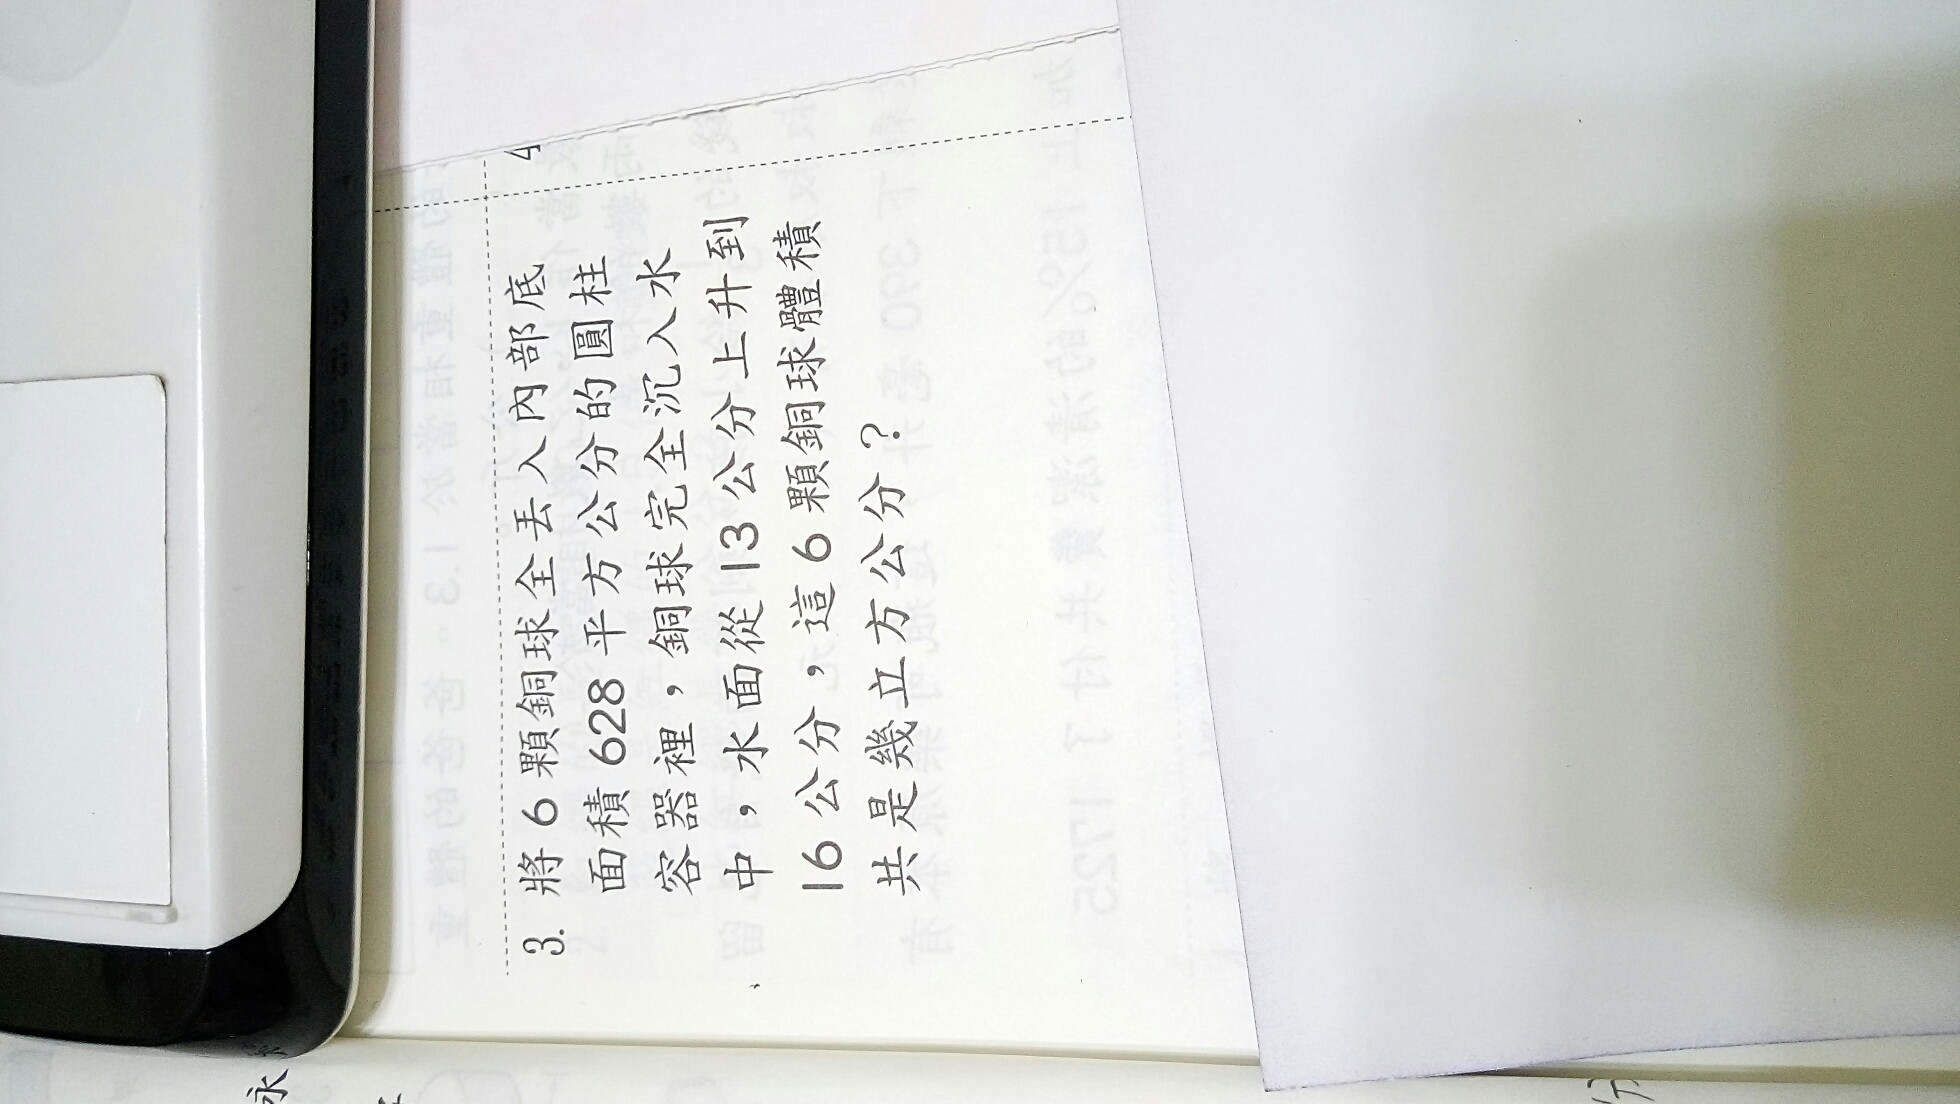 3. 將 6 顆銅球全丟入內部底
面積 628 平方公分的圓柱
容器裡，銅球完全沉入水
中，水面從 13 公分上升到
16 公分，這 6 顆銅球體積
共是幾立方公分？
4
永
分